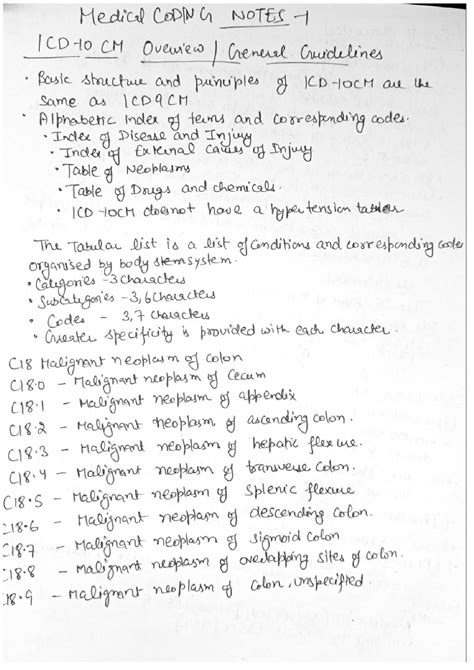 Medical CODING NOTES-1
ICD-10 CM Overview / General Guidelines
• Basic structure and principles of ICD-10CM are the
same as ICD9CM
• Alphabetic Index of terms and corresponding codes.
• Index of Disease and Injury
• Index of External Causes of Injury
• Table of Neoplasms
• Table of Drugs and chemicals.
• ICD-10CM doesnot have a hypertension table
The Tabular list is a list of conditions and corresponding code
organised by body system.
• Categories - 3 characters
• Subcategories - 3,6 characters
• Codes - 3,7 characters
• Greater specificity is provided with each character.
C18 Malignant neoplasm of colon
C18.0 - Malignant neoplasm of cecum
C18.1 - Malignant neoplasm of appendix
C18.2 - Malignant neoplasm of ascending colon.
C18.3 - Malignant neoplasm of hepatic flexure.
C18.4 - Malignant neoplasm of transverse colon.
C18.5 - Malignant neoplasm of splenic flexure
C18.6 - Malignant neoplasm of descending colon.
C18.7 - Malignant neoplasm of sigmoid colon
C18.8 - Malignant neoplasm of overlapping sites of colon.
C18.9 - Malignant neoplasm of colon, unspecified.